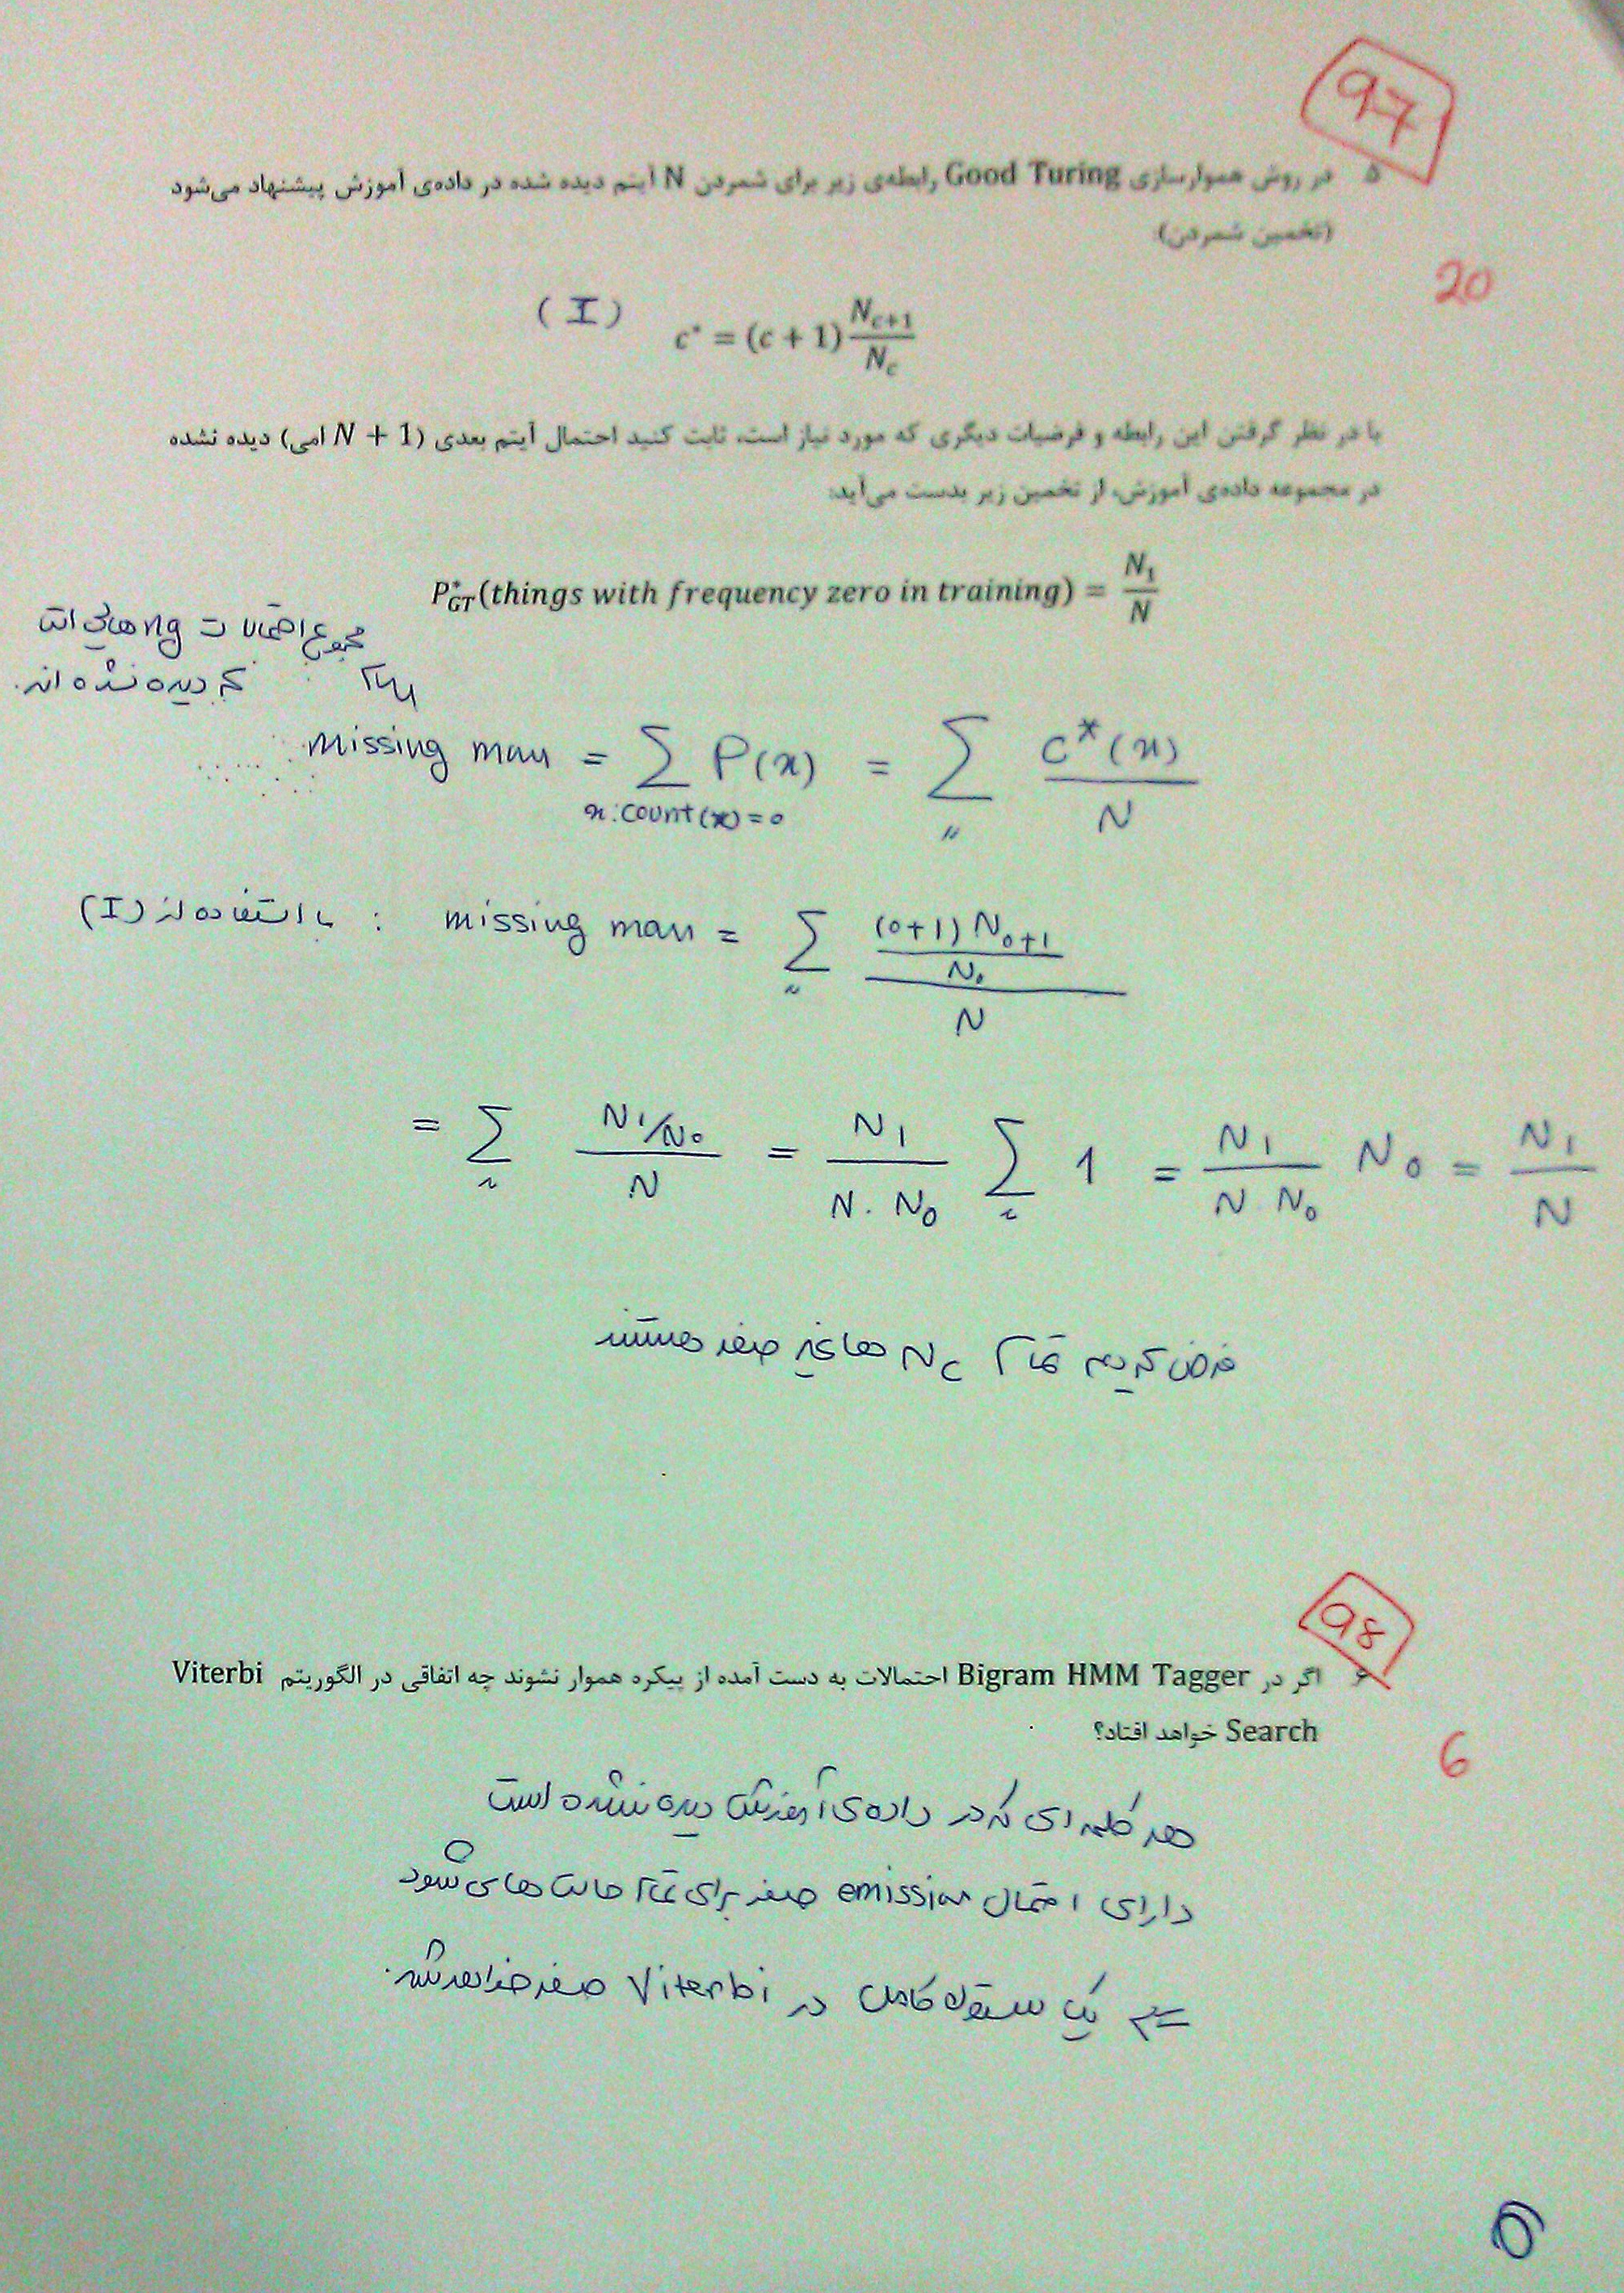 97
۵ در روش هموارسازی Good Turing رابطه‌ی زیر برای شمردن N آیتم دیده شده در داده‌ی آموزش پیشنهاد می‌شود
(تخمین شمردن):
20
(I) c* = (c + 1) N_{c+1} / N_c
با در نظر گرفتن این رابطه و فرضیات دیگری که مورد نیاز است، ثابت کنید احتمال آیتم بعدی (N + 1 امی) دیده نشده
در مجموعه داده‌ی آموزش، از تخمین زیر بدست می‌آید:
P*_{GT}(things with frequency zero in training) = N_1 / N
مجموع احتمالات ng هایی است
که دیده نشده اند.
missing mass = ∑_{x:count(x)=0} P(x) = ∑_{"} c*(x) / N
با استفاده از (I) : missing mass = ∑_{"} ((0+1) N_{0+1} / N_0) / N
= ∑_{"} (N_1/N_0) / N = N_1 / (N . N_0) ∑_{"} 1 = N_1 / (N N_0) N_0 = N_1 / N
فرض کردیم تمام N_c ها غیر صفر هستند
98
۶ اگر در Bigram HMM Tagger احتمالات به دست آمده از پیکره هموار نشوند چه اتفاقی در الگوریتم Viterbi
Search خواهد افتاد؟
6
هر کلمه ای که در داده ی آموزش دیده نشده است
دارای احتمال emission صفر برای تمام حالت ها می شود
⇐ یک ستون کامل در Viterbi صفر خواهد شد.